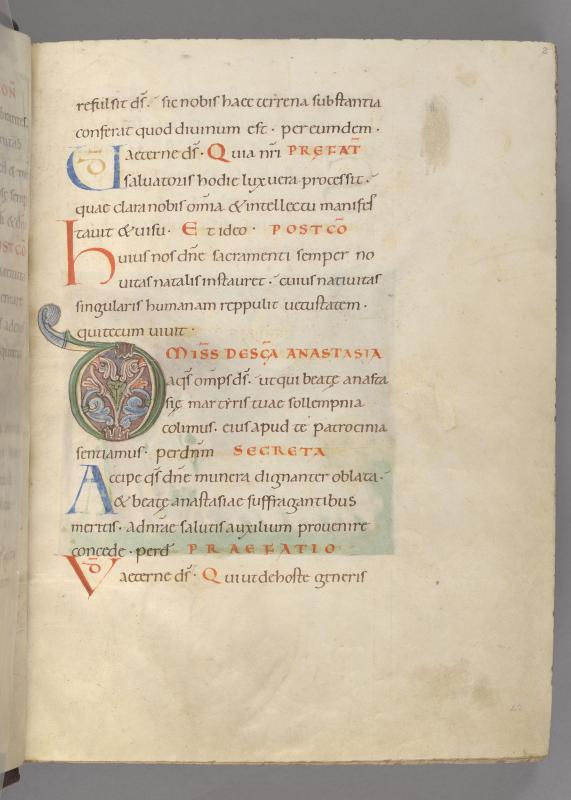 refulsit dſ. sic nobis haec terrena substantia
conferat quod diuinum est · per eumdem ·
UD aeterne dſ · Quia nr̄i PREFAT̄
saluatoris hodie lux uera processit.
quae clara nobis om̄ia & intellectu manifes
tauit & uisu · Et ideo · POSTCŌ
Huius nos dn̄e sacramenti semper no
uitas natalis instauret · cuius natiuitas
singularis humanam reppulit uetustatem ·
qui tecum uiuit ·
MISS DE SCĀ ANASTASIA
Da q̄s om̄ps dſ · ut qui beatę anasta
się martyris tuae sollempnia
colimus · eius apud te patrocinia
sentiamus · per dn̄m SECRETA
Accipe q̄s dn̄e munera dignanter oblata ·
& beatę anastasiae suffragantibus
meritis · ad nr̄ae salutis auxilium prouenire
concede · per d̄ PRAEFATIO
VD aeterne dſ · Qui ut de hoste generis